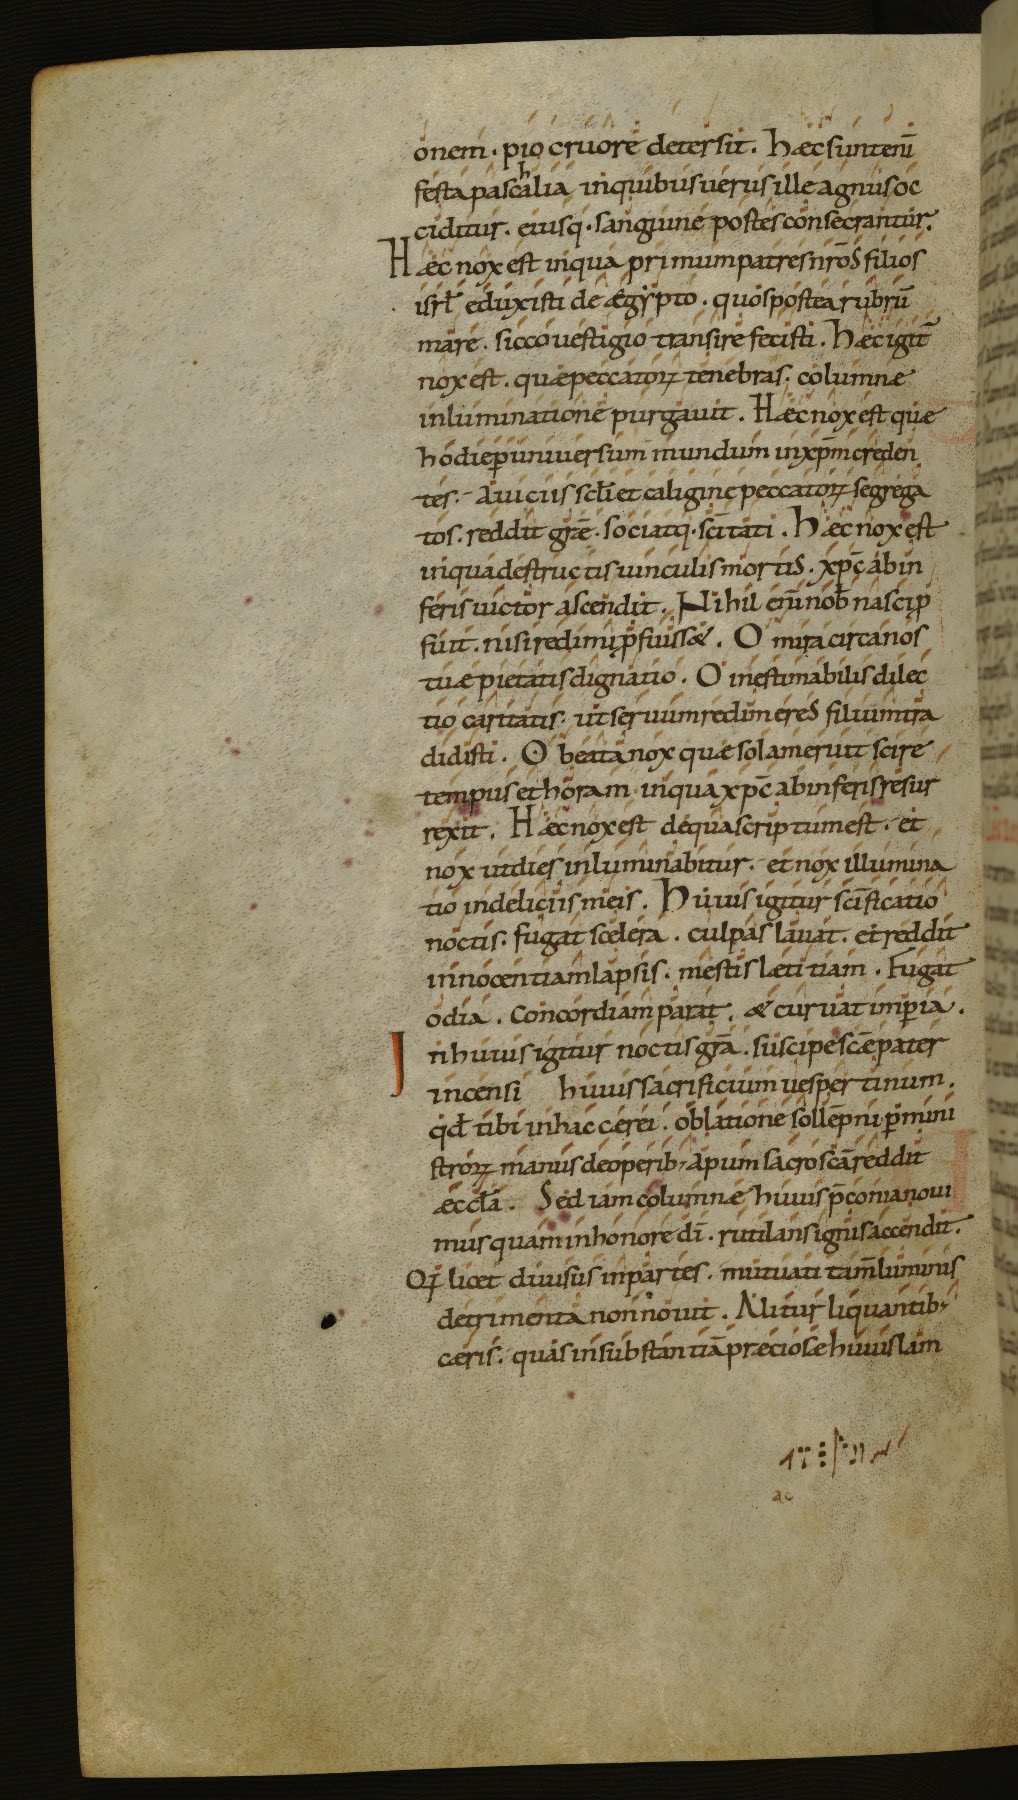 onem · pio cruore detersit. Hæc sunt eni᷄
festa paschalia in quibus uerus ille agnus oc
ciditur. eiusq· sanguine postes consecrantur.
Hæc nox est in qua primum patres nr̄os filios
isrl̄ eduxisti de Ægypto. quos postea rubrū
mare. sicco uestigio transire fecisti. Hæc igit̄
nox est. quæ peccatoꝝ tenebras. columnæ
inluminatione purgauit. Hæc nox est quæ
hodie ꝑ uniuersum mundum in xp̄m creden
tes. A uiciis scl̄i et caligine peccatoꝝ segrega
tos. reddit grǣ. sociatq· scīitati. Hæc nox est
in qua destructis uinculis mortis. xp̄c ab in
feris uictor ascendit. Nihil eni᷄ nob̄ nasci p̄
fuit. nisi redimi p̄fuiss&. O mira circa nos
tuæ pietatis dignatio. O inestimabilis dilec
tio caritatis. ut seruum redimeres filium tra
didisti. O beata nox quæ sola meruit scire
tempus et horam in qua xp̄c ab inferis resur
rexit. Hæc nox est de qua scriptum est. et
nox ut dies inluminabitur. et nox illumina
tio in deliciis meis. Huius igitur scīficatio
noctis. fugat scelera. culpas lauat. et reddit
innocentiam lapsis. mestis lætitiam. Fugat
odia. Concordiam parat. & curuat imꝑia.
In huius igitur noctis grā. suscipe scē pater
incensi huius sacrificium uespertinum.
qd̄ tibi in hac cærei. oblatione sollēpni ꝑ mini
stroꝝ manus de operib; apum sacrosc̄a reddit
æccl̄a. Sed iam columnæ huius p̄conia noui
mus quam in honore dī. rutilans ignis accendit.
Qꝫ licet diuisus in partes. mutuati tam̄ luminis
detrimenta non nouit. Alitur liquantib;
cæris. quas in substantiā preciosæ huius lam
ac